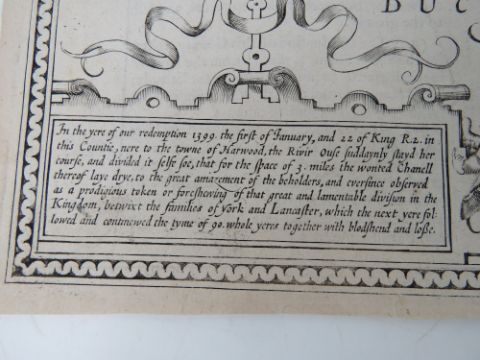 BUC
In the yere of our redemption 1399. the first of January, and 22 of King R.2. in
this Countie, nere to the towne of Harwood, the Rivir Ouse suddaynly stayd her
course, and divided it selfe soe, that for the space of 3. miles the wonted Chanell
thereof laye drye, to the great amazement of the beholders, and eversince observed
as a prodigious token or foreshewing of that great and lamentable division in the
Kingdom, betwixt the families of York and Lancaster, which the next yere fol:
lowed and continewed the tyme of 90. whole yeres together with blodshend and losse.